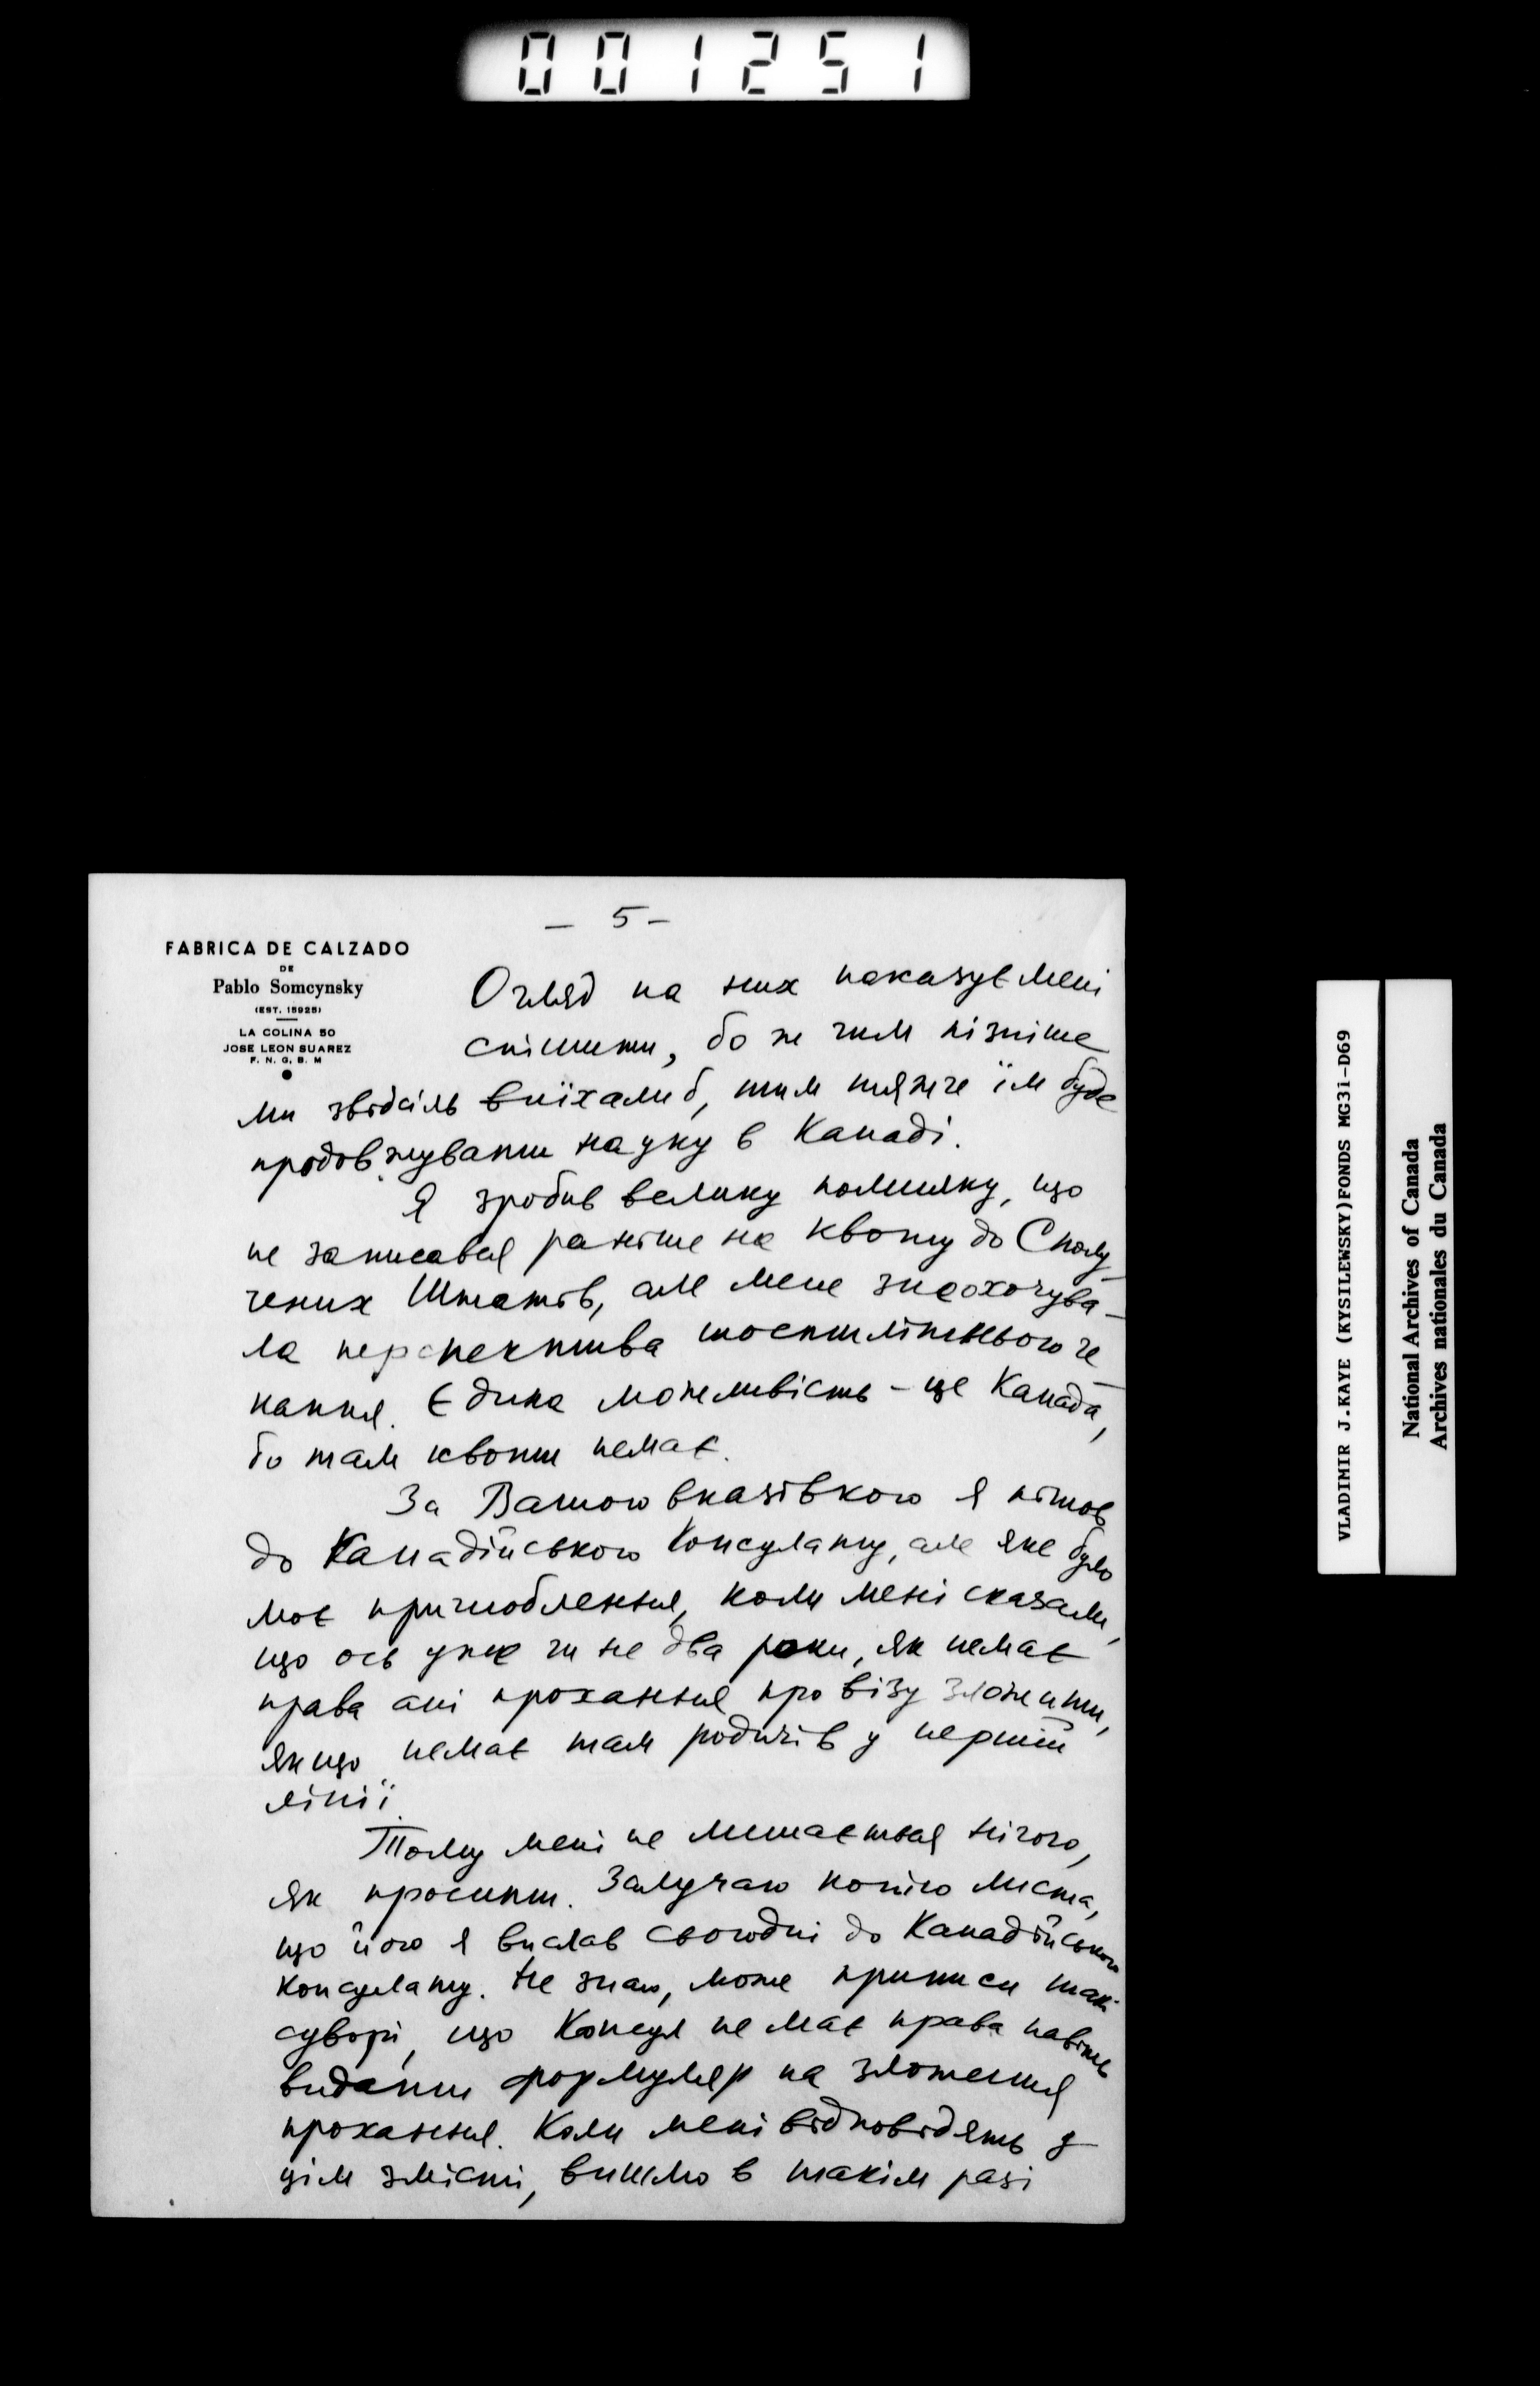 001251
- 5 -
FABRICA DE CALZADO
DE
Pablo Somcynsky
(EST. 15925)
LA COLINA 50
JOSE LEON SUAREZ
F. N. G. B. M
Огляд на них наказує мені
спішити, бо же чим пізніше
ми звідсіль виїхали б, тим тяжче їм буде
продовжувати науку в Канаді.
Я зробив велику помилку, що
не записався раніше на квоту до Сполу-
чених Штатів, але мене знеохочува-
ла перспектива шостилітнього че-
кання. Єдина можливість - це Канада,
бо там квоти немає.
За Вашою вказівкою я пішов
до Канадійського Консуляту, але яке було
моє пригноблення, коли мені сказали,
що ось уже чи не два роки, як немає
права ані прохання про візу зложити,
якщо немає там родичів у першій
лінії.
Тому мені не лишається нічого,
як просити. Залучаю копію листа,
що його я вислав сьогодні до Канадійського
Консуляту. Не знаю, може приписи такі
суворі, що Консул не має права навіть
видати формуляр на зложення
прохання. Коли мені відповідять у
цім змісті, вишлю в такім разі
VLADIMIR J.KAYE (KYSILEWSKY)FONDS MG31-D69
National Archives of Canada
Archives nationales du Canada